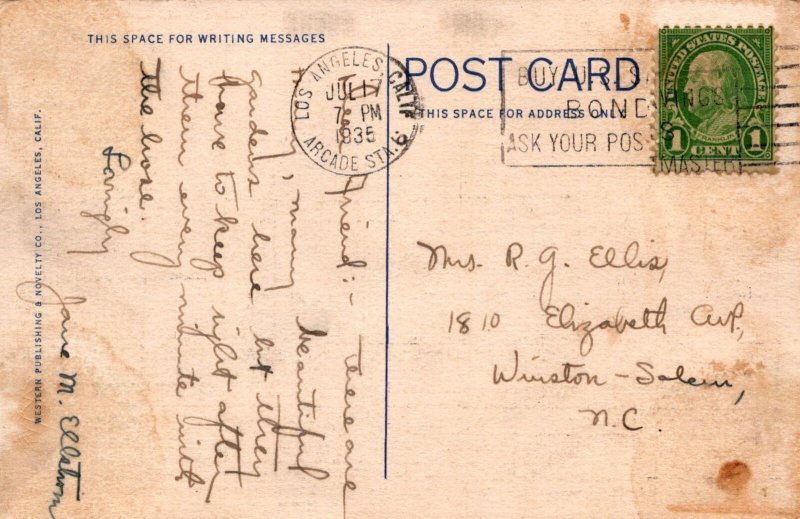 THIS SPACE FOR WRITING MESSAGES
POST CARD
THIS SPACE FOR ADDRESS ONLY
WESTERN PUBLISHING & NOVELTY CO., LOS ANGELES, CALIF.
LOS ANGELES, CALIF.
JUL 17
7 PM
1935
ARCADE STA.
BUY U.S. SAVINGS
BONDS
ASK YOUR POSTMASTER
UNITED STATES POSTAGE
FRANKLIN
1 CENT 1
Friend:- There are
many, many beautiful
gardens here but they
have to keep right after
them every minute with
the hose.
Lovingly
Jane M. Ellstrom
Mrs. R. G. Ellis,
1810 Elizabeth Ave,
Winston-Salem,
N.C.